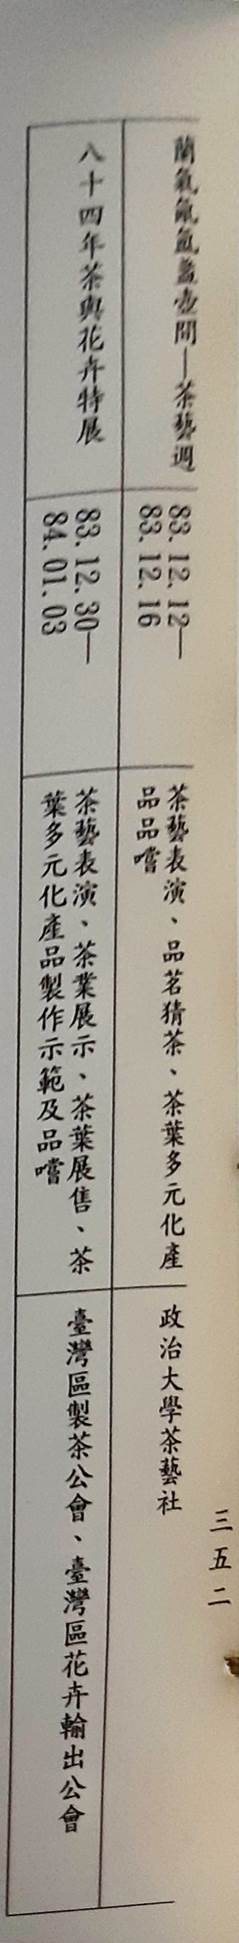 蘭氣氤氳蠡壺間—茶藝週
83. 12. 12—
83. 12. 16
茶藝表演、品茗猜茶、茶葉多元化產
品品嚐
政治大學茶藝社
八十四年茶與花卉特展
83. 12. 30—
84. 01. 03
茶藝表演、茶業展示、茶葉展售、茶
葉多元化產品製作示範及品嚐
臺灣區製茶公會、臺灣區花卉輸出公會
三五二